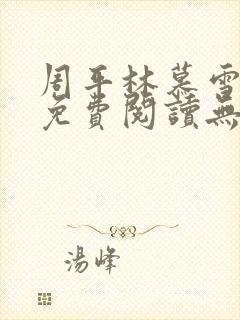 周平林慕雪
免費閱讀無
湯峰